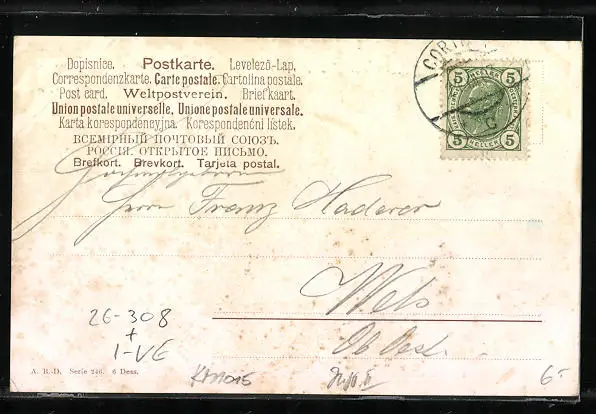 Dopisnice. Postkarte. Levelező-Lap.
Correspondenzkarte. Carte postale. Cartolina postale.
Post card. Weltpostverein. Briefkaart.
Union postale universelle. Unione postale universale.
Karta korespondencyjna. Korespondenční lístek.
ВСЕМІРНЫЙ ПОЧТОВЫЙ СОЮЗЪ.
РОССІЯ. ОТКРЫТОЕ ПИСЬМО.
Brefkort. Brevkort. Tarjeta postal.
5 HELLER 5
5 HELLER 5
Herrn Franz Haderer
Wels
Ob Oest.
26-308
+
1-VE
A. R.-D. Serie 246. 6 Dess.
6-